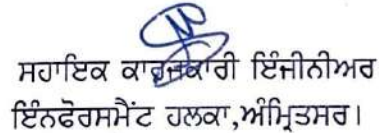 ਸਹਾਇਕ ਕਾਰਜਕਾਰੀ ਇੰਜੀਨੀਅਰ
ਇੰਨਫੋਰਸਮੈਂਟ ਹਲਕਾ,ਅੰਮ੍ਰਿਤਸਰ।